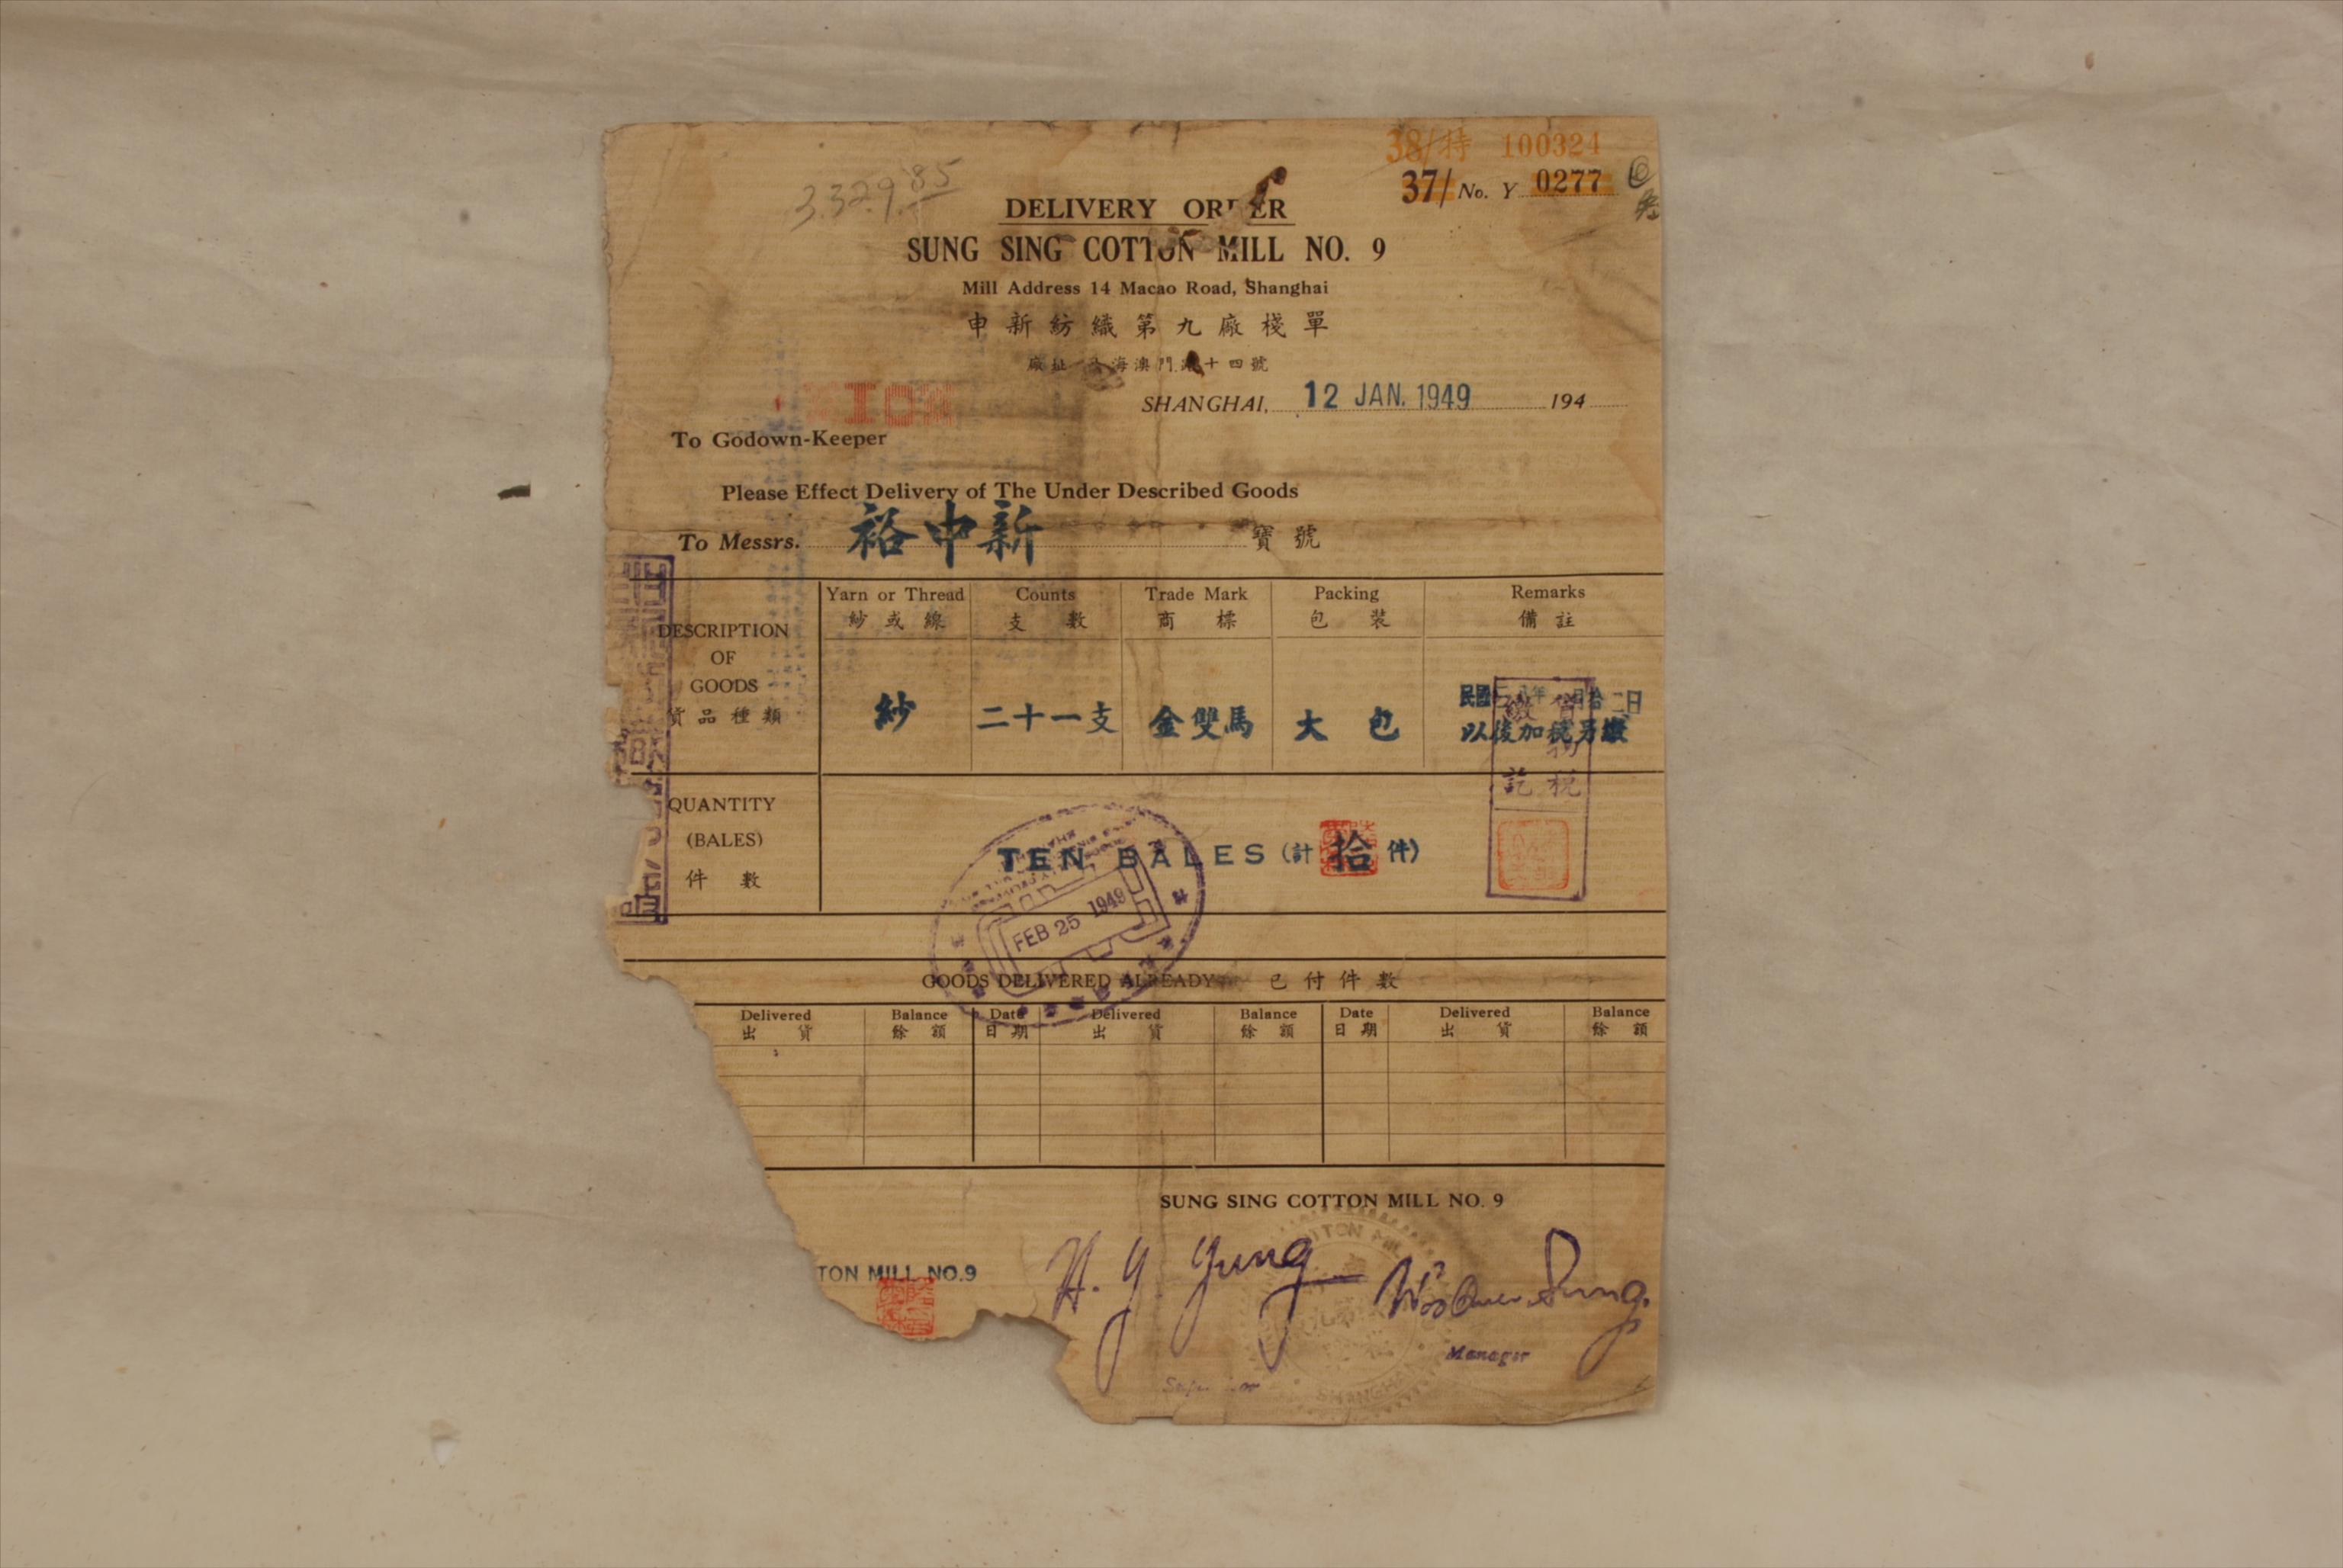 38/特 100324
37/ No. Y 0277
3.329.85
DELIVERY ORDER
SUNG SING COTTON MILL NO. 9
Mill Address 14 Macao Road, Shanghai
申新紡織第九廠棧單
廠址 上海澳門路十四號
SHANGHAI, 12 JAN. 1949 194
To Godown-Keeper
Please Effect Delivery of The Under Described Goods
To Messrs. 裕中新 寶號
DESCRIPTION OF GOODS 貨品種類
Yarn or Thread 紗或線
Counts 支數
Trade Mark 商標
Packing 包裝
Remarks 備註
紗
二十一支
金雙馬
大包
民國三八年一月拾二日
以後加稅另繳
貨物稅
繳訖
QUANTITY (BALES) 件數
TEN BALES (計拾件)
FEB 25 1949
GOODS DELIVERED ALREADY 已付件數
Delivered Balance Date Delivered Balance Date Delivered Balance
出貨 餘額 日期 出貨 餘額 日期 出貨 餘額
SUNG SING COTTON MILL NO. 9
TON MILL NO.9
H. Y. Yung
Manager
SHANGHAI